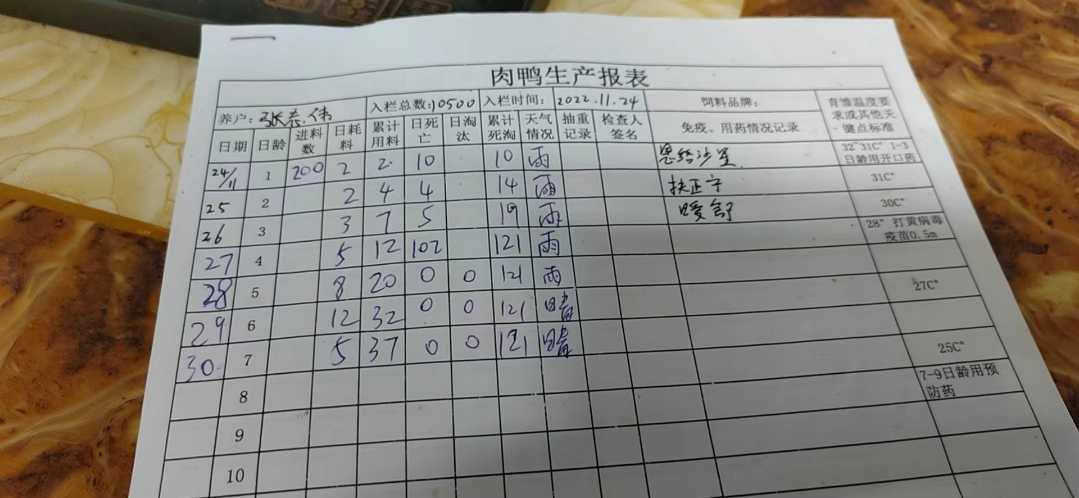 肉鸭生产报表
养户: 张志伟 入栏总数:10500 入栏时间: 2022.11.24 饲料品牌: 育雏温度要求或其他关键点标准
日期 日龄 进料数 日耗料 累计用料 日死亡 日淘汰 累计死淘 天气情况 抽重记录 检查人签名 免疫、用药情况记录
24/11 1 200 2 2 10 10 雨 恩诺沙星 32~31C° 1-3日龄用开口药
25 2 2 4 4 14 雨 扶正宁 31C°
26 3 3 7 5 19 雨 暖舒 30C°
27 4 5 12 102 121 雨 28° 打黄病毒疫苗0.5m
28 5 8 20 0 0 121 雨
29 6 12 32 0 0 121 晴 27C°
30 7 5 37 0 0 121 晴
8 25C°
9 7-9日龄用预防药
10